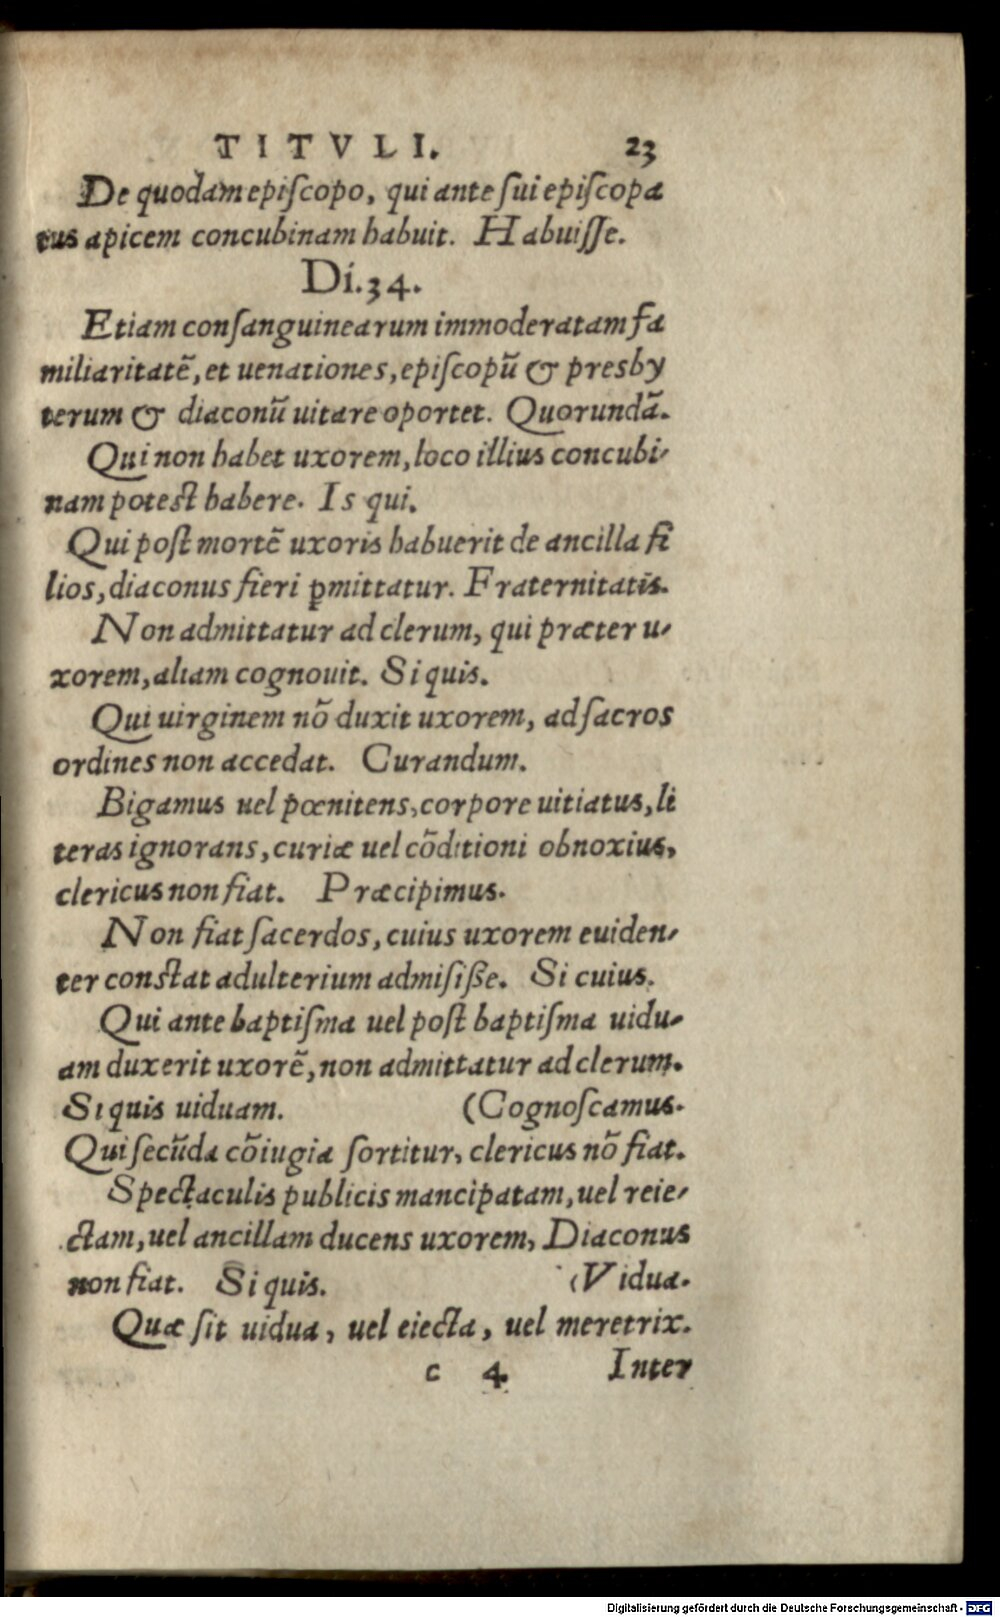 TITVLI. 23
De quodam episcopo, qui ante sui episcopa
tus apicem concubinam habuit. Habuisse.
Di.34.
Etiam consanguinearum immoderatam fa
miliaritatē, et uenationes, episcopū & presby
terum & diaconū uitare oportet. Quorundā.
Qui non habet uxorem, loco illius concubi-
nam potest habere. Is qui.
Qui post mortē uxoris habuerit de ancilla fi
lios, diaconus fieri ꝑmittatur. Fraternitatis.
Non admittatur ad clerum, qui præter u-
xorem, aliam cognouit. Si quis.
Qui uirginem nō duxit uxorem, ad sacros
ordines non accedat. Curandum.
Bigamus uel pœnitens, corpore uitiatus, li
teras ignorans, curiæ uel cōditioni obnoxius,
clericus non fiat. Præcipimus.
Non fiat sacerdos, cuius uxorem euiden-
ter constat adulterium admisiße. Si cuius.
Qui ante baptisma uel post baptisma uidu-
am duxerit uxorē, non admittatur ad clerum.
Si quis uiduam. (Cognoscamus.
Qui secūda cōiugia sortitur, clericus nō fiat.
Spectaculis publicis mancipatam, uel reie-
ctam, uel ancillam ducens uxorem, Diaconus
non fiat. Si quis. (Vidua.
Quæ sit uidua, uel eiecta, uel meretrix.
c 4 Inter
Digitalisierung gefördert durch die Deutsche Forschungsgemeinschaft - DFG